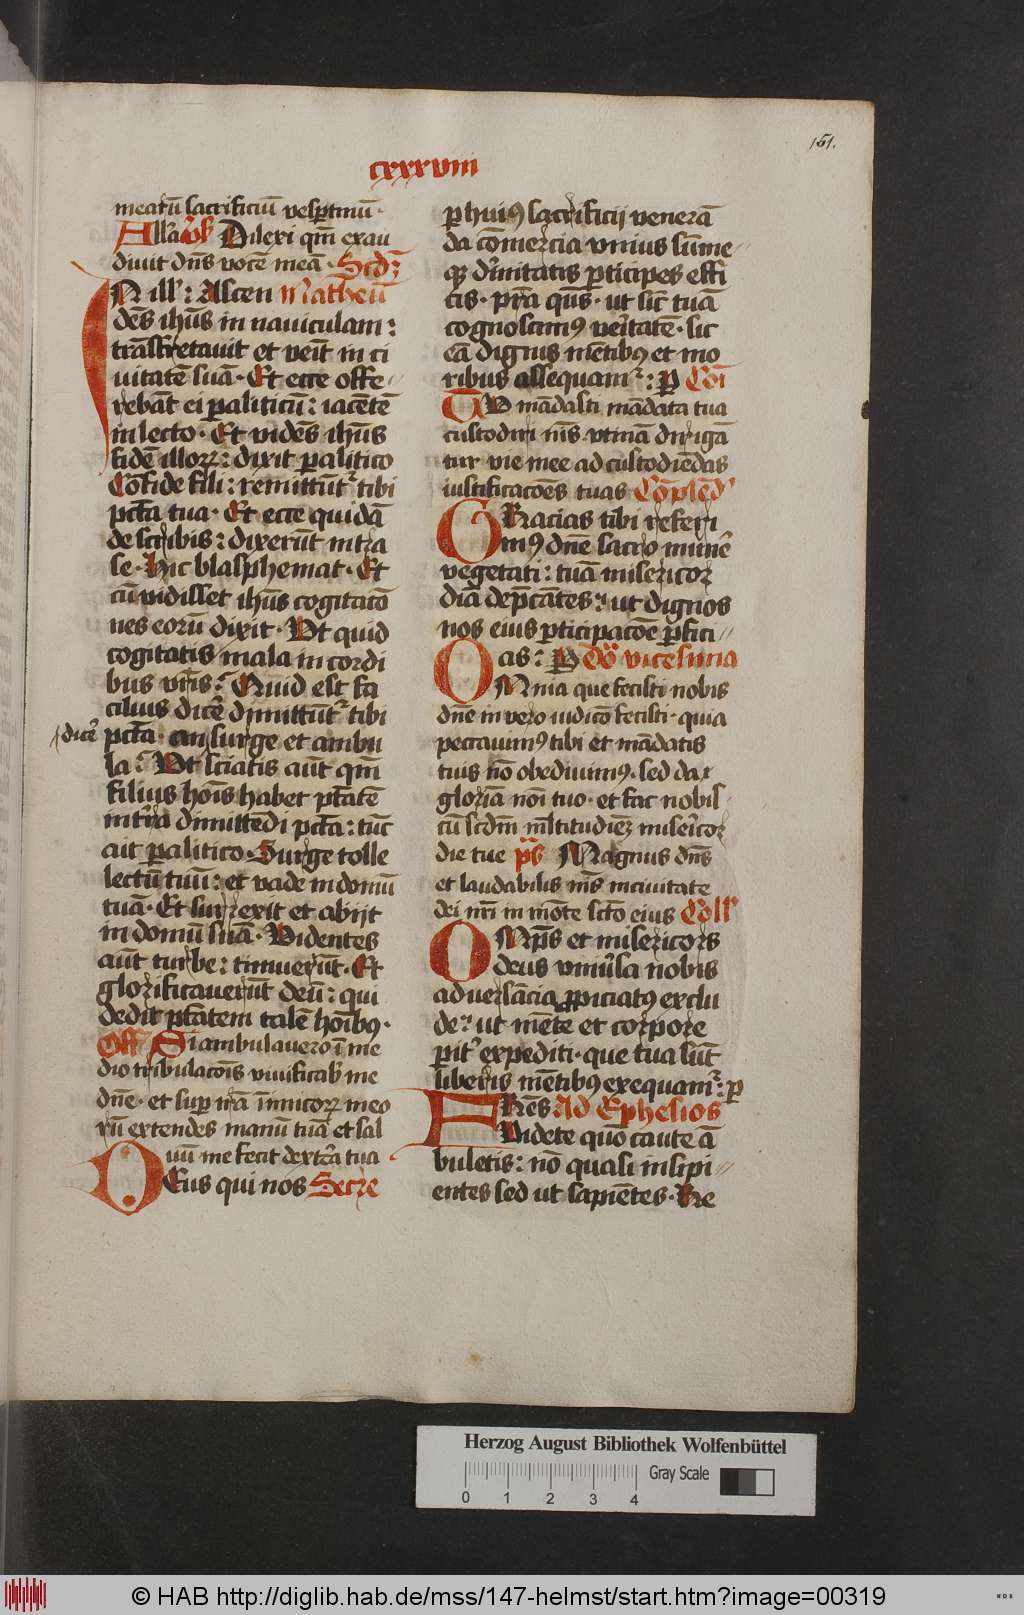 151.
cxxxviii
mearū sacrificiū vespertinū·
Alla vͬs Dilexi qm̄ exau
divit dn̄s vocē meā· Scdꝫ
N illꝰ: Ascen Matheū
dēs ihūs in naviculam:
trāsfretavit et venīt in ci
uitatē suā· Et ecce offe
rebāt ei paliticū: iacētē
in lecto· Et vidēs ihūs
fidē illorꝝ: dixit palitico
Cōfide fili: remittūtᷣ tibi
pctā tua· Et ecce quidā
de scribis: dixerūt intra
se· Hic blasphemat· Et
cū vidisset ihūs cogitatō
nes eorū dixit· Vt quid
cogitatis mala in cordi
bus vr̄is: Quid est fa
cilius dicē dimittūtᷣ tibi
dicē
pctā· an surge et ambu
la: Vt sciatis aūt qm̄
filius hoīs habet ptātē
in tr̄ra dimittēdi pctā: tūc
ait palitico· Surge tolle
lectū tuū: et vade in domū
tuā· Et surrexit et abijt
in domū suā· Videntes
aūt turbe: timuerūt· Et
glorificaverūt deū: qui
dedit ptātem talē hoībꝰ·
Off Si ambulavero ī me
dio tribulacōis vivificabᷤ me
dnē· et suꝑ irā inimicorꝝ meo
rū extendes manū tuā et sal
uū me fecit dextr̄a tua
Deus qui nos Secre
ꝑ huiꝰ sacrificij venerā
da cōmercia vnius sūme
qꝫ diīnitatis ꝑticipes effi
cis· pr̄a qūs· ut sic̄ tuā
cognoscimꝰ veītatē· sic
eā dignis mētibꝰ et mo
ribus assequamᷣ: ꝑ Cōī
TV mādasti mādata tua
custodiri nīs vtinā dirigā
tur vie mee ad custodiēdas
iustificacōes tuas Cōplēdᷤ
GRacias tibi referi
mꝰ dnē sacro munē
vegetati: tuā misericor
diā dep̄cātes: ut dignos
nos eius ꝑticipacōe ꝑfici
as: ꝑ Dō vicesima
OMnia que fecisti nobis
dnē in vero iudicō fecisti· quia
peccavimꝰ tibi et mādatis
tuis nō obedivimꝰ· sed da
gloriā noī tuo· et fac nobis
cū scdm̄ mltitudiēꝫ misericor
die tue ps̄ Magnus dn̄s
et laudabilis nīs in civitate
dei nr̄i in mōte sctō eius Coll
OMp̄s et misericors
deus vniūsa nobis
adversācia ꝓpiciatꝰ exclu
de: ut mēte et corpore
ꝑitᷣ expediti· que tua sūt
liberis mētibꝰ exequamᷣ: ꝑ
FRēs Ad Ephesios
Videte quō caute ā
buletis: nō quasi insipi
entes sed ut sapiētes· Re
Herzog August Bibliothek Wolfenbüttel
Gray Scale
0 1 2 3 4
© HAB http://diglib.hab.de/mss/147-helmst/start.htm?image=00319